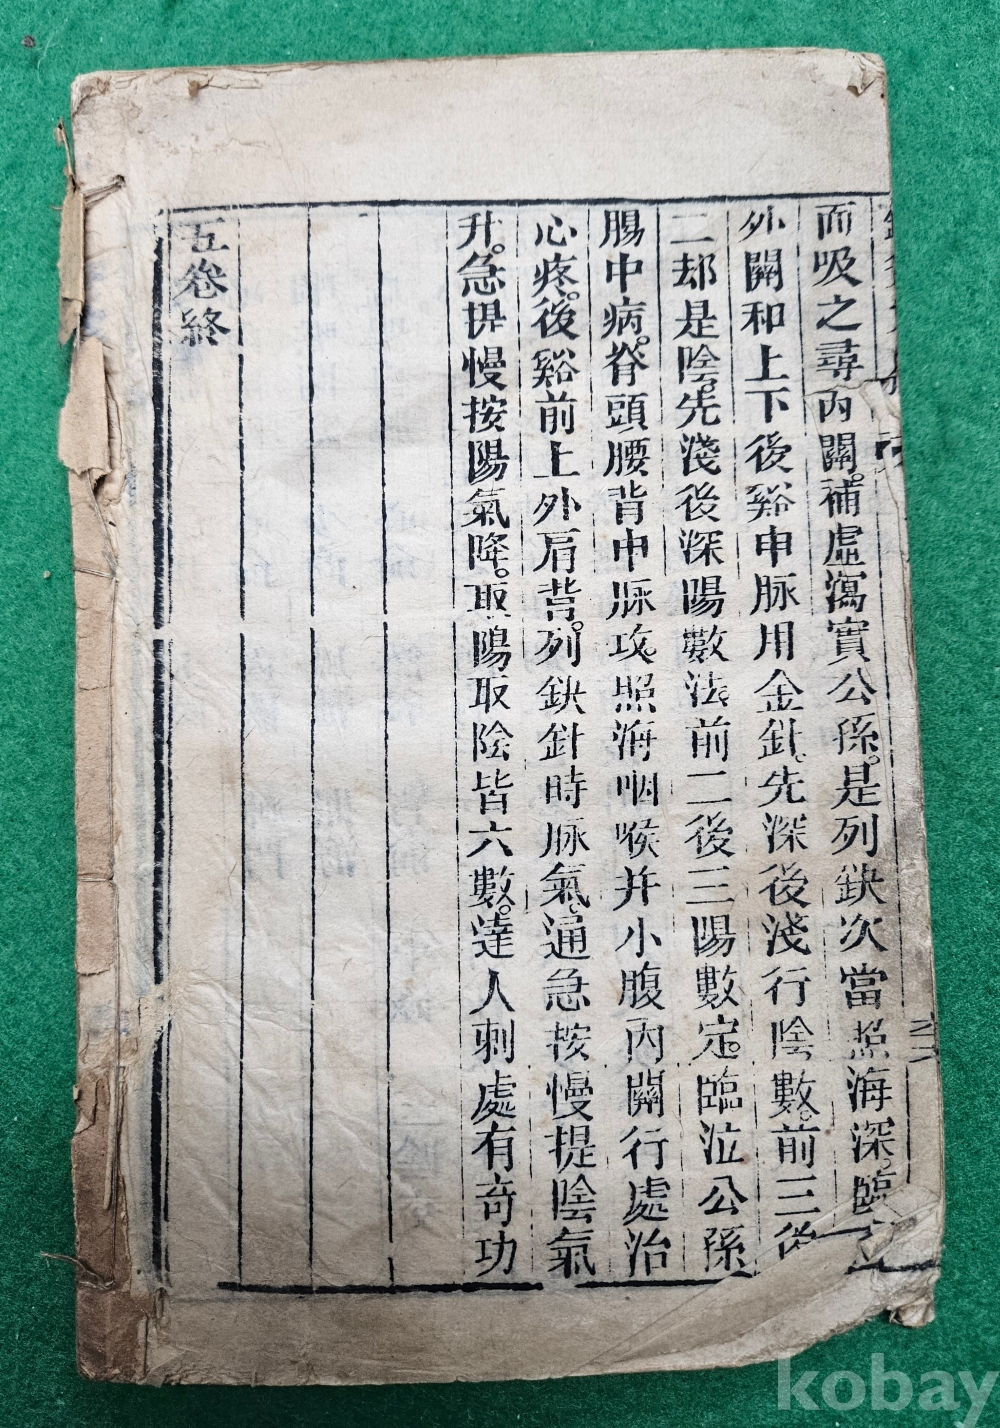 而吸之尋內關。補虛瀉實公孫。是列缺次當照海深。臨
外關和上下後谿申脉用金針。先深後淺行陰數。前三後
二却是陰。先淺後深陽數法。前二後三陽數定。臨泣公孫
腸中病。脊頭腰背申脉攻。照海咽喉并小腹內關行處治
心疼。後谿前上外肩背。列缺針時脉氣。通急按慢提陰氣
升。急提慢按陽氣降。取陽取陰皆六數。達人刺處有奇功
五卷終
kobay